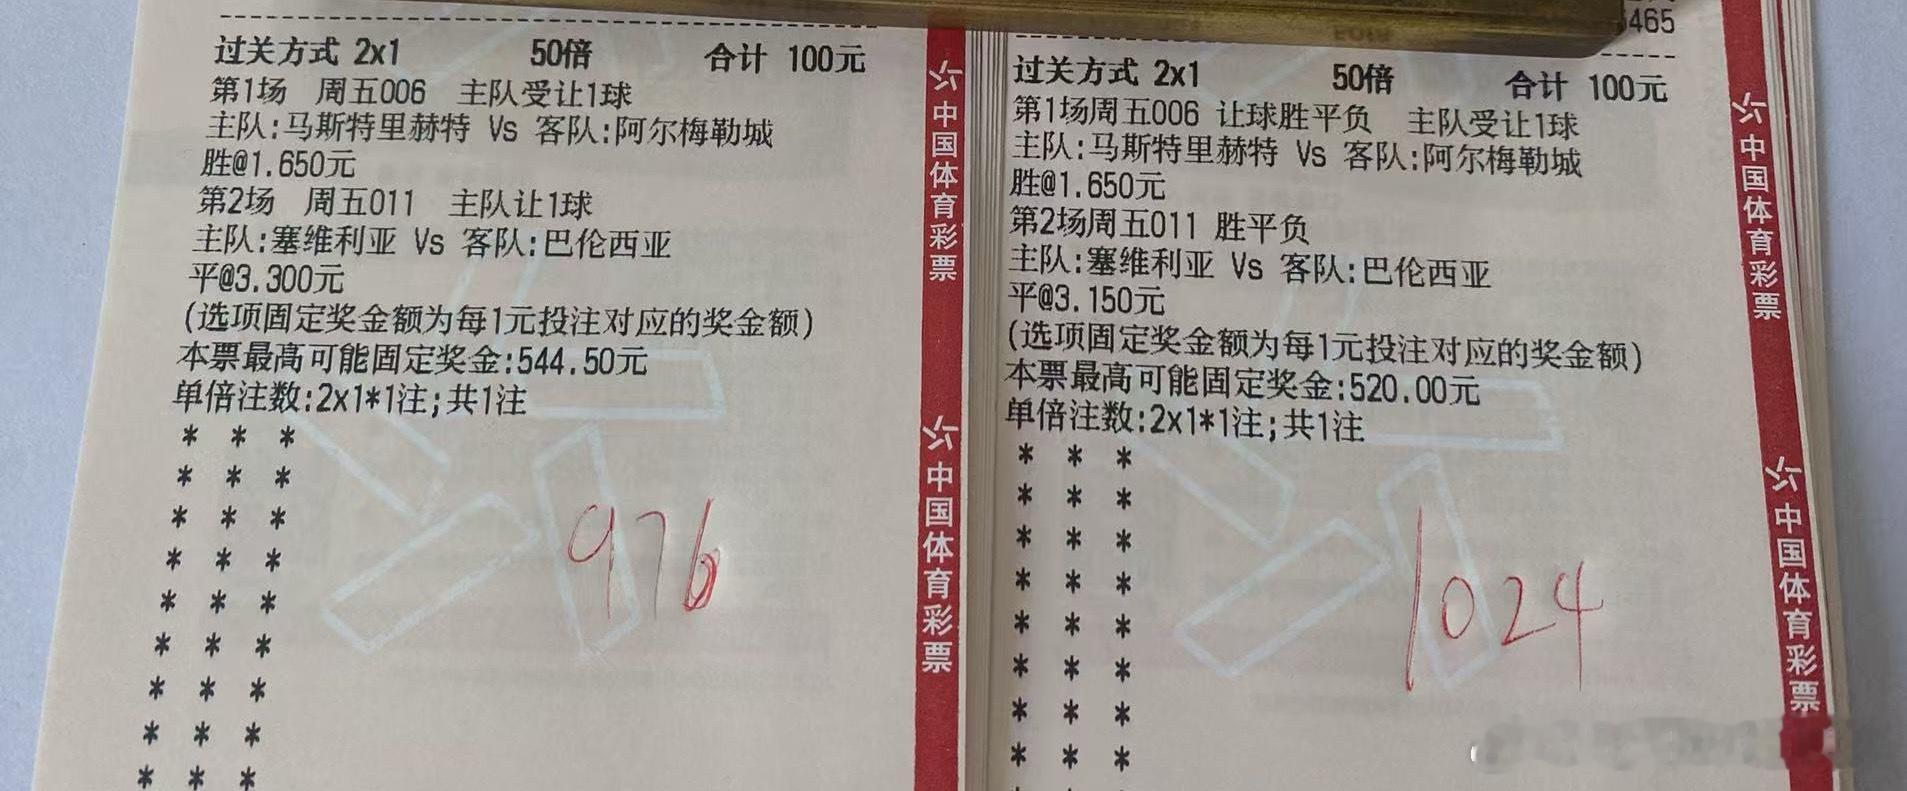 过关方式 2x1 50倍 合计 100元
第1场 周五006 主队受让1球
主队:马斯特里赫特 Vs 客队:阿尔梅勒城
胜@1.650元
第2场 周五011 主队让1球
主队:塞维利亚 Vs 客队:巴伦西亚
平@3.300元
(选项固定奖金额为每1元投注对应的奖金额)
本票最高可能固定奖金:544.50元
单倍注数:2x1*1注;共1注
* * *
* * *
* * *
* * *
* * *
* * *
* * *
* * *
* * *
976
中国体育彩票
中国体育彩票
465
过关方式 2x1 50倍 合计 100元
第1场周五006 让球胜平负 主队受让1球
主队:马斯特里赫特 Vs 客队:阿尔梅勒城
胜@1.650元
第2场周五011 胜平负
主队:塞维利亚 Vs 客队:巴伦西亚
平@3.150元
(选项固定奖金额为每1元投注对应的奖金额)
本票最高可能固定奖金:520.00元
单倍注数:2x1*1注;共1注
* * *
* * *
* * *
* * *
* * *
* * *
* * *
* * *
1024
中国体育彩票
中国体育彩票